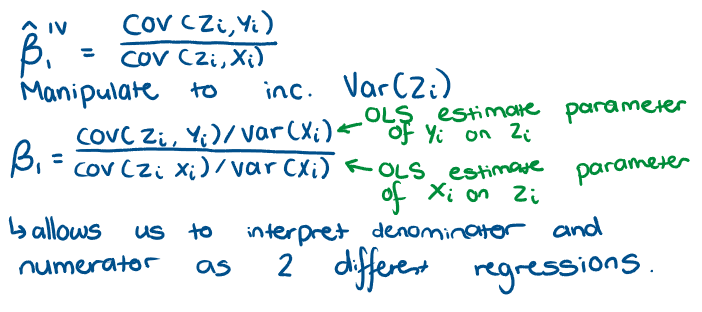 β̂₁ᴵⱽ = Cov(Zi, Yi) / Cov(Zi, Xi)
Manipulate to inc. Var(Zi)
β₁ = Cov(Zi, Yi)/Var(Xi) / Cov(Zi Xi)/Var(Xi)
← OLS estimate parameter
of Yi on Zi
← OLS estimate parameter
of Xi on Zi
↳ allows us to interpret denominator and
numerator as 2 different regressions.